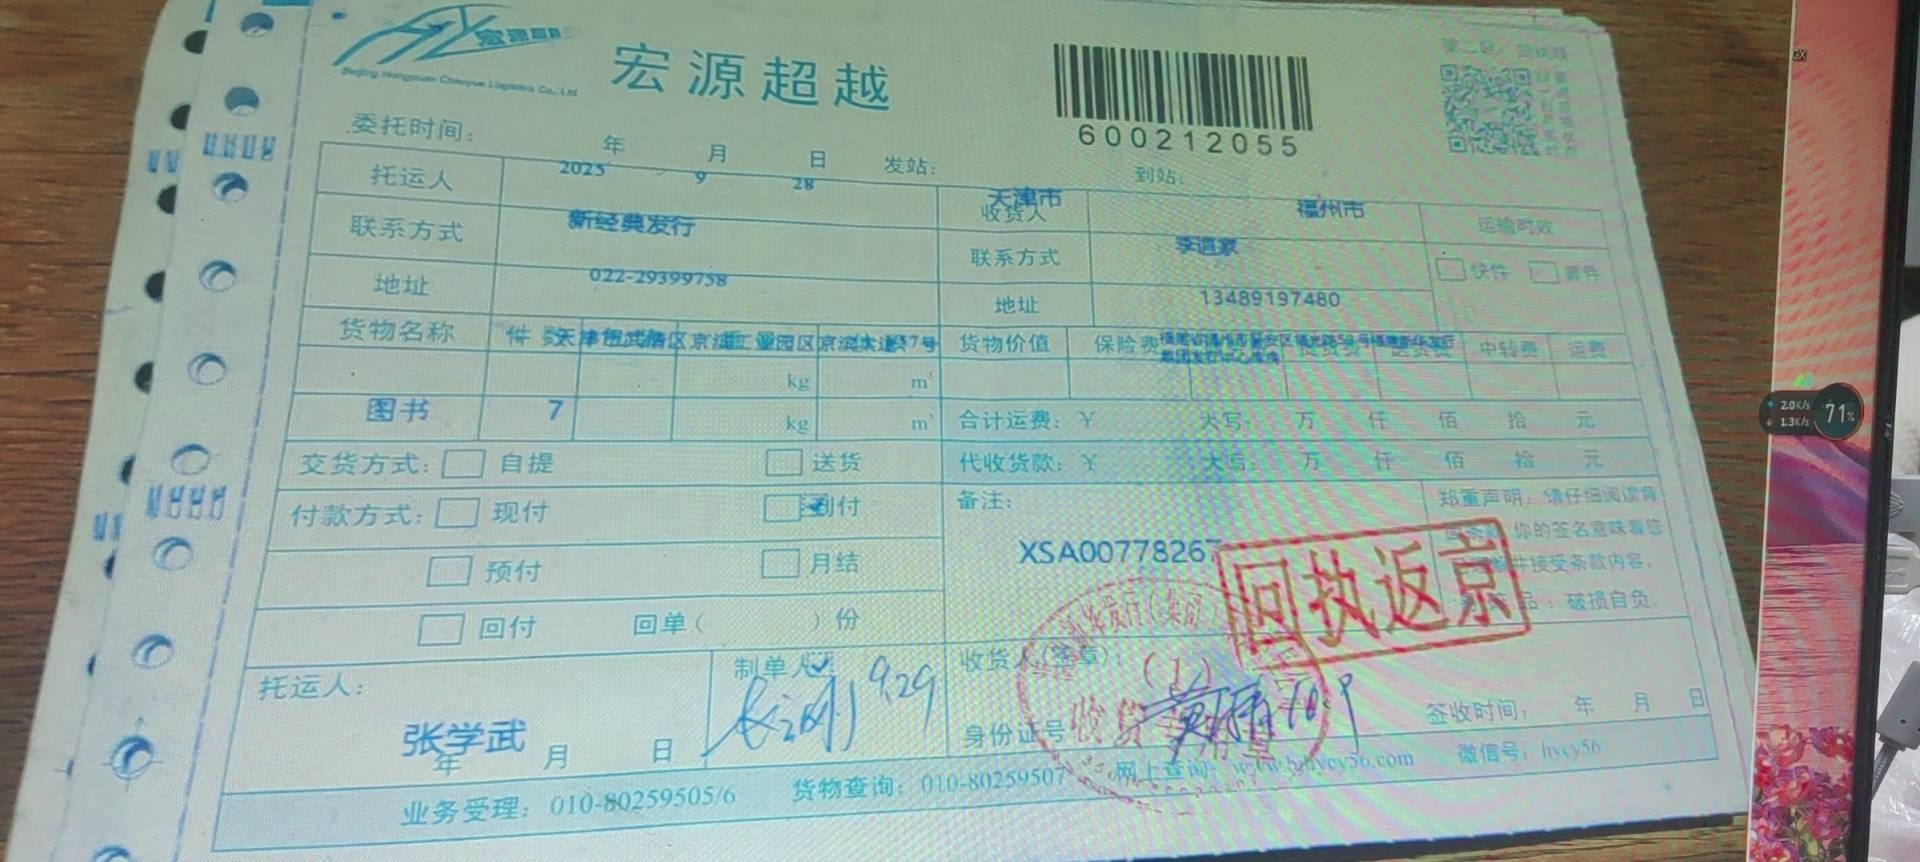 宏源超越
Beijing Hongyuan Chaoyue Logistics Co., Ltd.
宏源超越
600212055
委托时间： 年 月 日 发站： 到站：
2025 9 28 天津市 福州市
托运人 收货人 运输时效
新经典发行
联系方式 联系方式 快件 普件
022-29399758 13489197480
地址 地址
天津市武清区京滨工业园区京滨大道 7号
货物名称 件 货物价值 保险费 中转费 运费
kg m³
图书 7 kg m³
合计运费：￥ 大写： 万 仟 佰 拾 元
交货方式： 自提 送货
代收货款：￥ 大写： 万 仟 佰 拾 元
付款方式： 现付 到付
备注：
XSA00778267
郑重声明：请仔细阅读背
你的签名意味着您
并接受条款内容，
品：破损自负.
回执返京
预付 月结
回付 回单（ ）份
托运人：
张学武
年 月 日
制单人
9.29
收货人(签章)：
(1)
收货专用章
身份证号
10.9
签收时间： 年 月 日
业务受理：010-80259505/6 货物查询：010-80259507 网上查询：www.bjhycy56.com 微信号：hycy56
2.0K/s
1.3K/s
71%